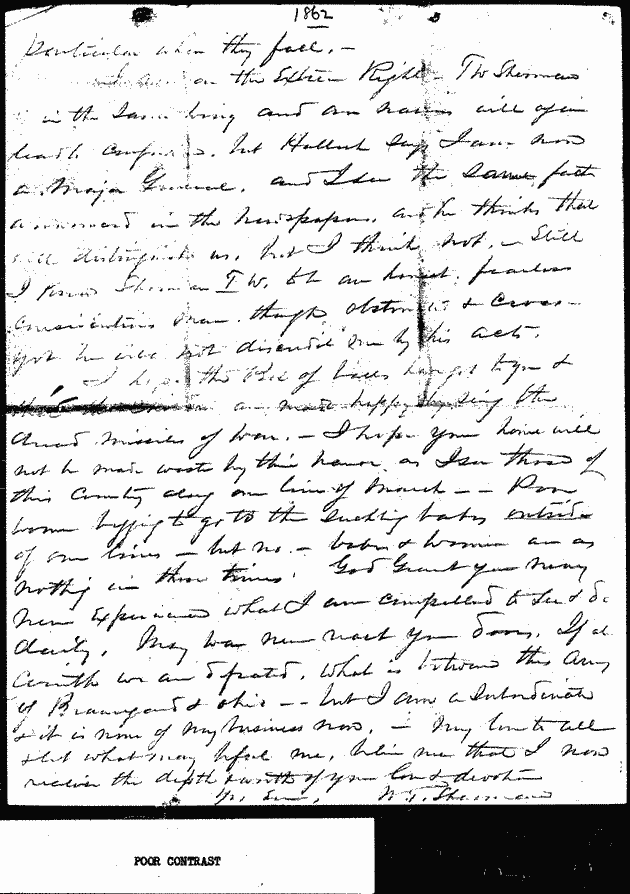 1862
particular when they fall. —
I am on the Extreme Right — TW Sherman
is in the same wing and our names will again
lead to confusion, but Halleck says I am now
a Major General, and I see the same fact
announced in the newspapers, and he thinks that
will distinguish us, but I think not. — Still
I know Sherman T W. to be an honest, fearless
conscientious man, though obstinate & cross —
Yet he will not discredit me by his acts.
I hope the Box of balls has got to you &
that the are made happy by seeing the
dread missiles of war. — I hope your home will
not be made waste by this as I see those of
this Country along our line of March — — Poor
women begging to go to the sucking babes outside
of our lines — but no. — babes & women are as
nothing in these times. God Grant you may
never Experience what I am compelled to see & do
daily. May war never reach your doors. If at
Corinth we are defeated, what is between this Army
of Beauregard & Ohio — — but I am a Subordinate
& it is none of my business now. — My love to all
& let what may befall me, believe me that I now
realize the depth & worth of your love & devotion
Yrs Ever, W. T. Sherman
POOR CONTRAST